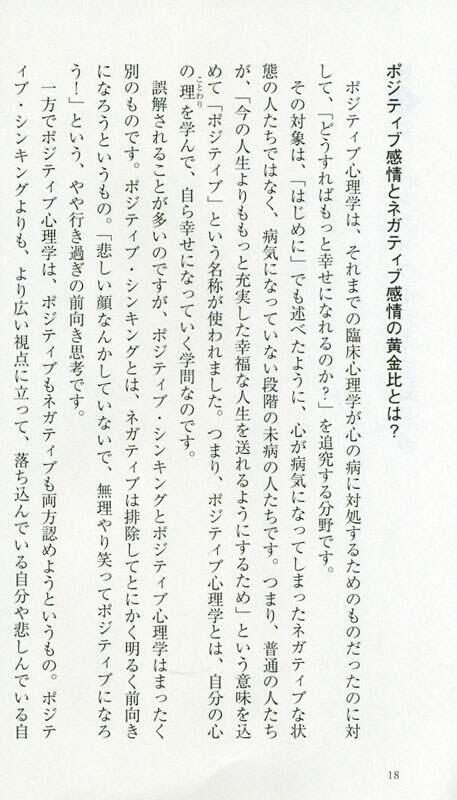 ポジティブ感情とネガティブ感情の黄金比とは？
ポジティブ心理学は、それまでの臨床心理学が心の病に対処するためのものだったのに対
して、「どうすればもっと幸せになれるのか？」を追究する分野です。
その対象は、「はじめに」でも述べたように、心が病気になってしまったネガティブな状
態の人たちではなく、病気になっていない段階の未病の人たちです。つまり、普通の人たち
が、「今の人生よりももっと充実した幸福な人生を送れるようにするため」という意味を込
めて「ポジティブ」という名称が使われました。つまり、ポジティブ心理学とは、自分の心
の理ことわりを学んで、自ら幸せになっていく学問なのです。
誤解されることが多いのですが、ポジティブ・シンキングとポジティブ心理学はまったく
別のものです。ポジティブ・シンキングとは、ネガティブは排除してとにかく明るく前向き
になろうというもの。「悲しい顔なんかしていないで、無理やり笑ってポジティブになろ
う！」という、やや行き過ぎの前向き思考です。
一方でポジティブ心理学は、ポジティブもネガティブも両方認めようというもの。ポジテ
ィブ・シンキングよりも、より広い視点に立って、落ち込んでいる自分や悲しんでいる自
18